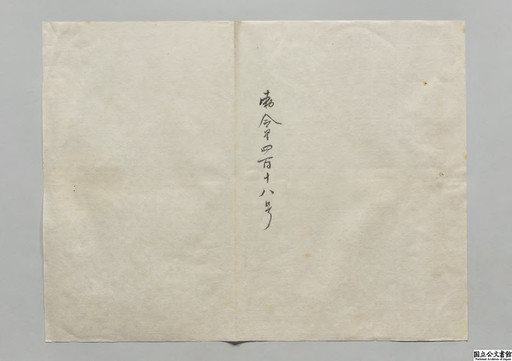 勅令第四百十八号
国立公文書館
National Archives of Japan